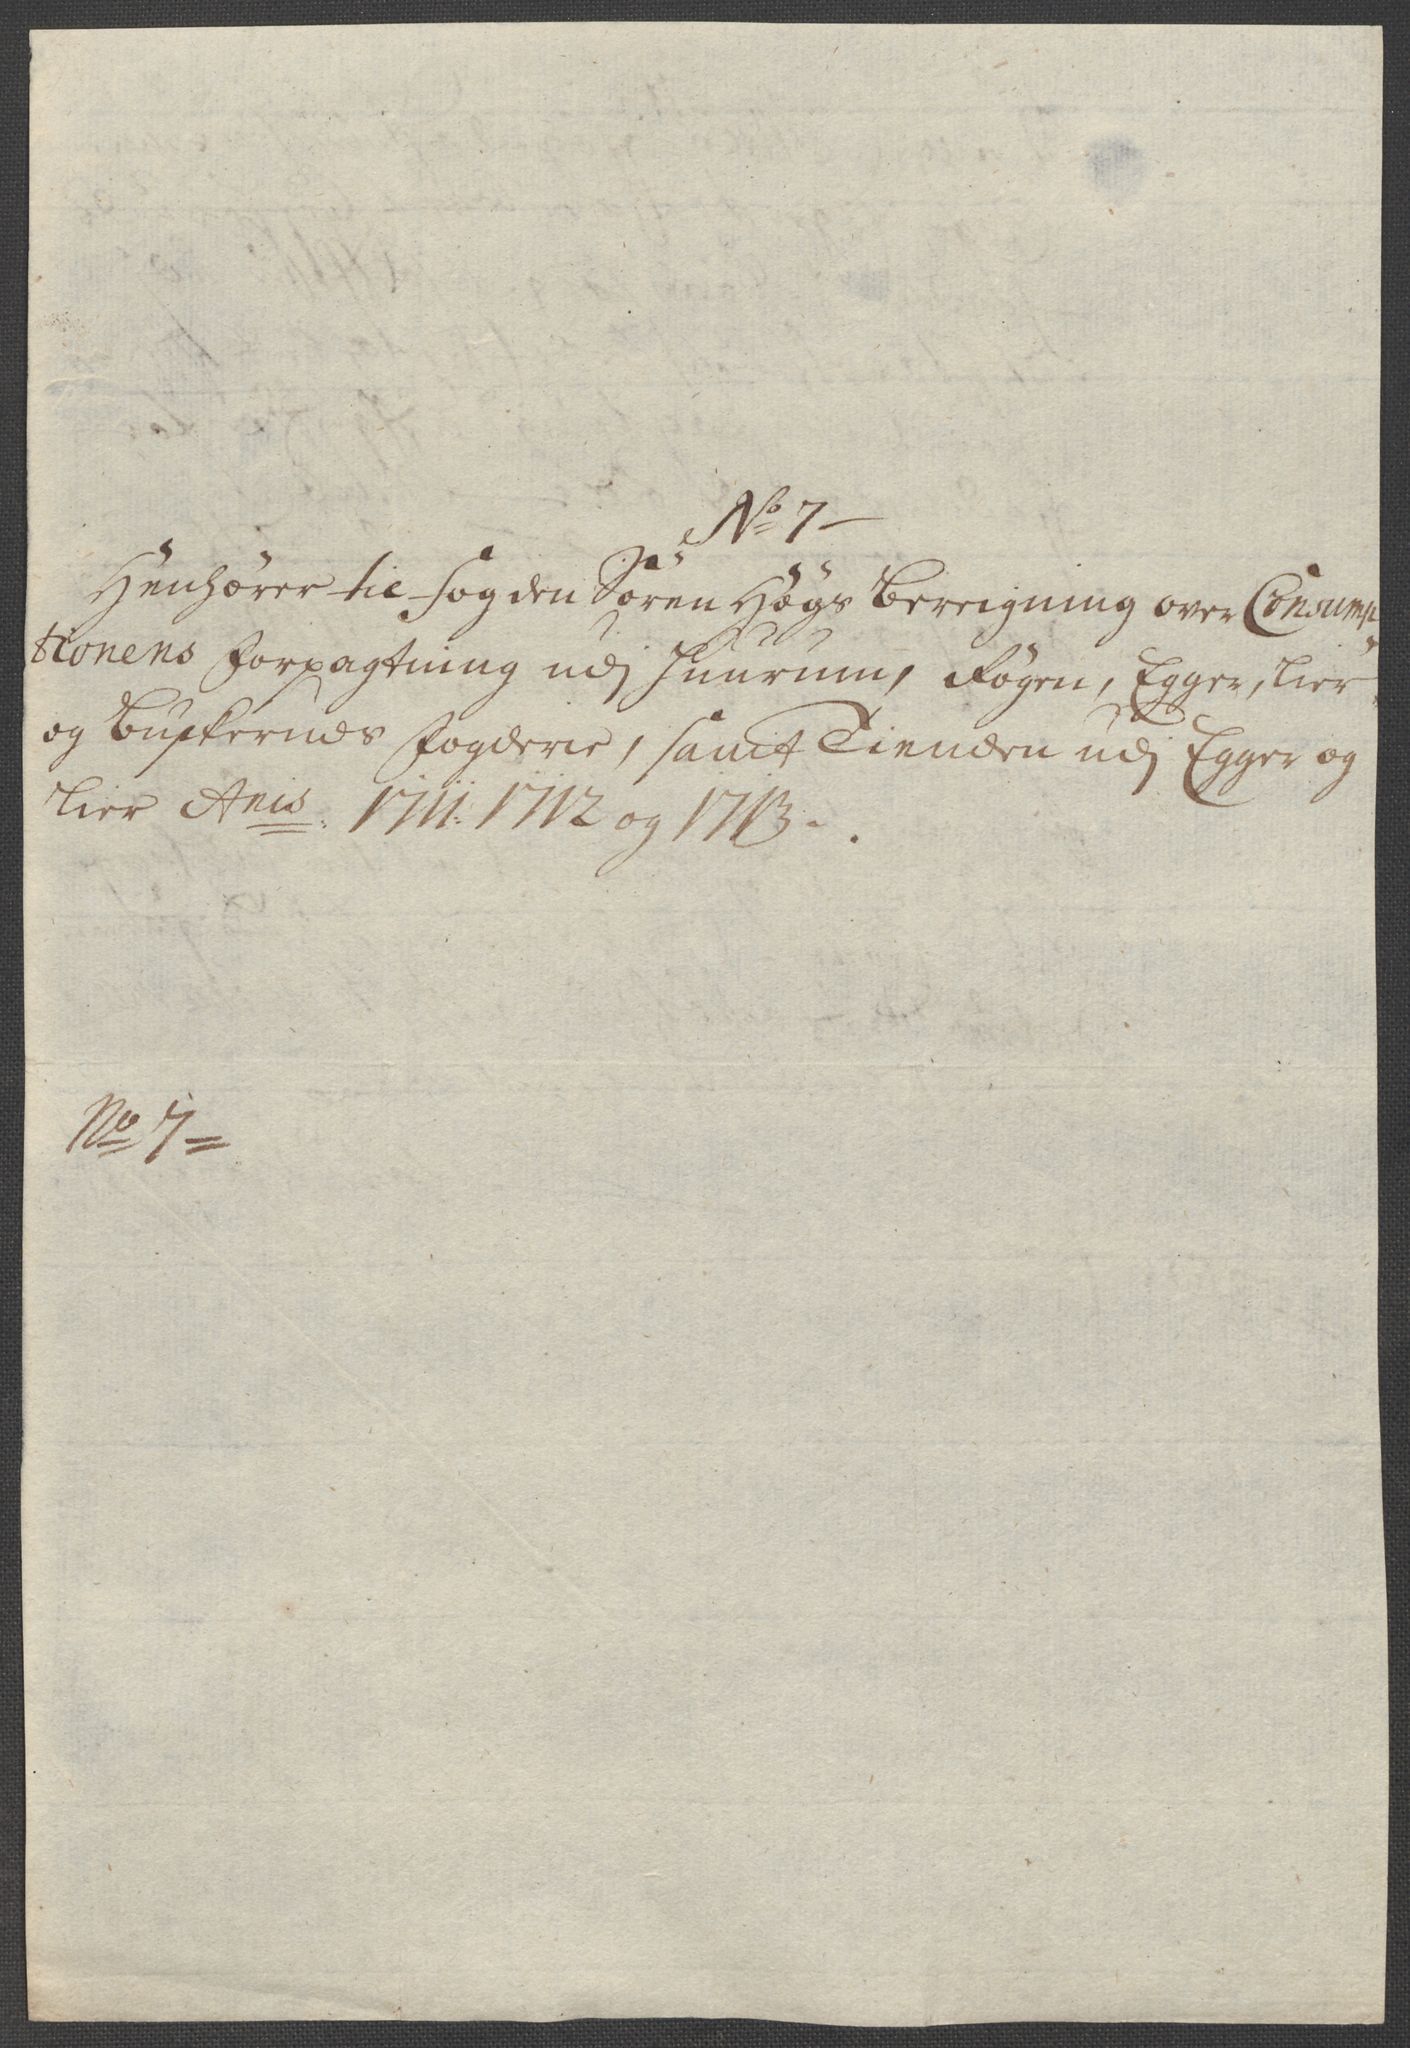 No 7
Henhører til fogden Søren Høgs Bereigning over Consump
tionens Forpagtning udj Huurum, Røgen, Egger, Lier
og Buskeruds Fogderie, samt Tienden udj Egger og
Lier Anis 1711: 1712 og 1713.
No 7